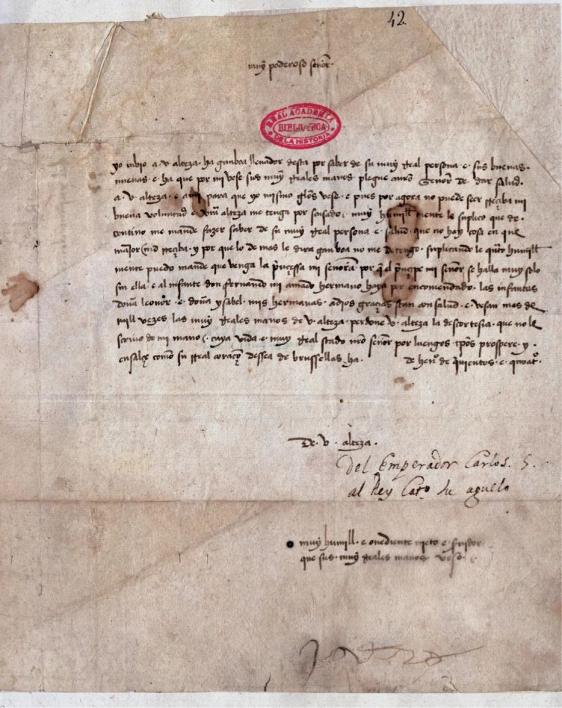 42
muy poderoso señor
REAL ACADEMIA
BIBLIOTECA
DE LA HISTORIA
yo inbio a v. alteza. ha ganboa llevador desta por saber de su muy Real persona e sus buenas
nuevas. e ha que por mi vese sus muy Reales manos. plegue a nro Señor de dar Salud
a. v. alteza. e a mi para que yo mismo gelos vese. e pues por agora no puede ser Reciba mi
buena voluntad e vra alteza me tenga por scusado. muy humill mente le suplico que de
contino me mande fazer saber de su muy Real persona e salud. que no hay cosa en que
mas mrd Reciba. y por que lo de mas le dira ganboa no me suplicando le quanto humill
mente puedo mande que venga la princessa mi señora por q el principe mi señor se halla muy solo
sin ella. e al infante don fernando mi amado hermano haya por encomendado. las infantas
doña leonor. e doña ysabel. mis hermanas. a dios gracias stan con salud. e vesan mas de
mill vezes las muy Reales manos de v. alteza. perdone v. alteza la descortesia. que no le
scrivo de mi mano. cuya vida e muy Real stado nro señor por luengos tpos prospere. y
ensalçe como su Real coraçon dessea de brussellas. ha. de hen° de quientos. e quatº.
De. v. alteza.
Del Emperador Carlos. 5.
al Rey Catº su aguelo
muy humill. e obediente nieto e servidor
que sus. muy Reales manos vesa